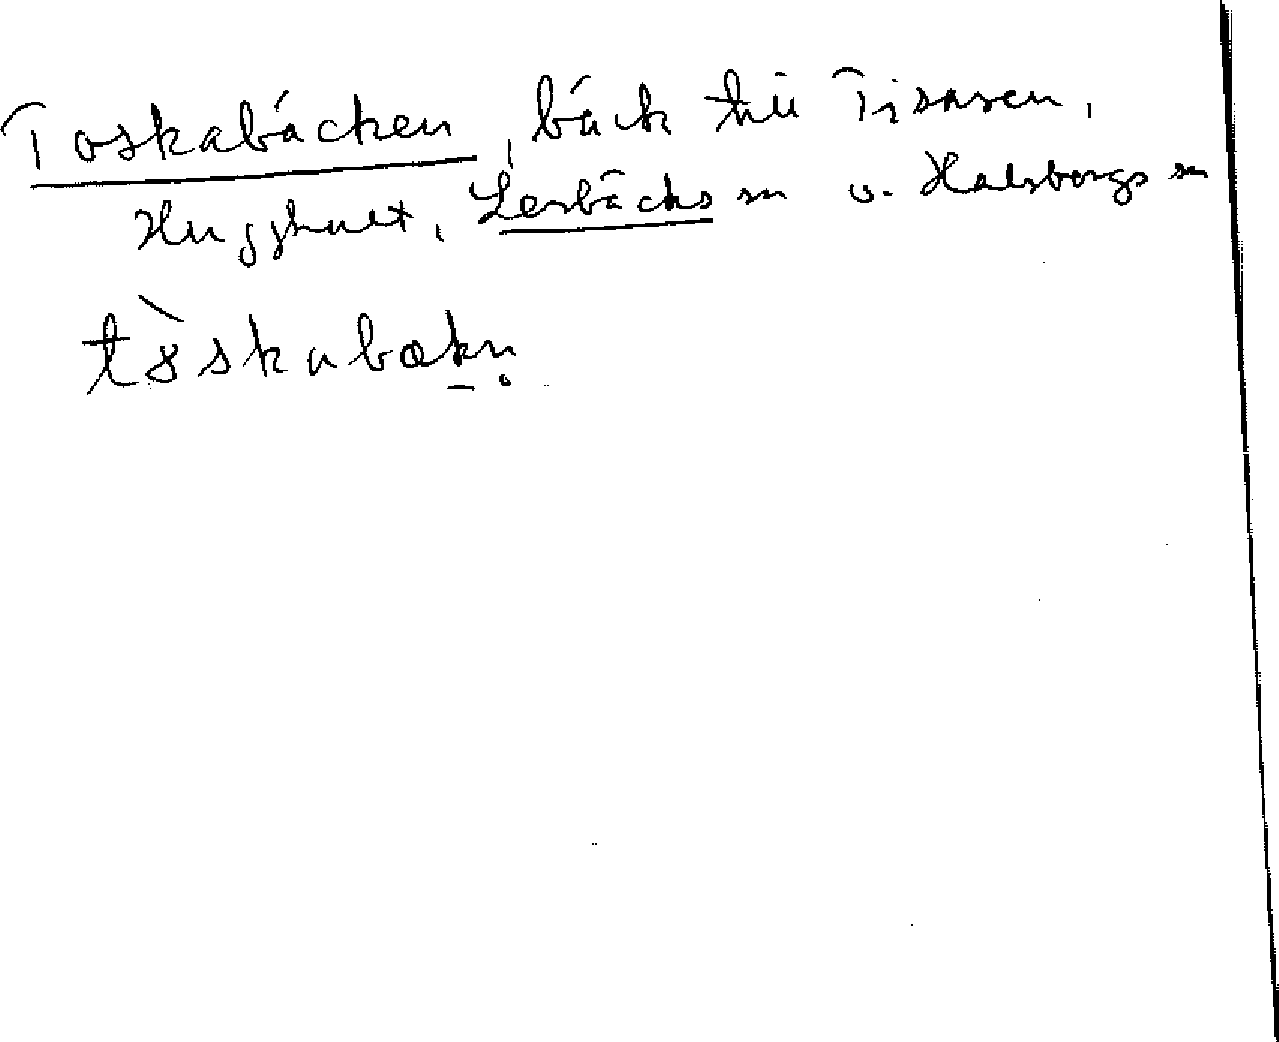 Toskabäcken, bäck till Tisaren,
Hugghult, Lerbäcks sn o. Halsbergs sn
tòskabækn̥